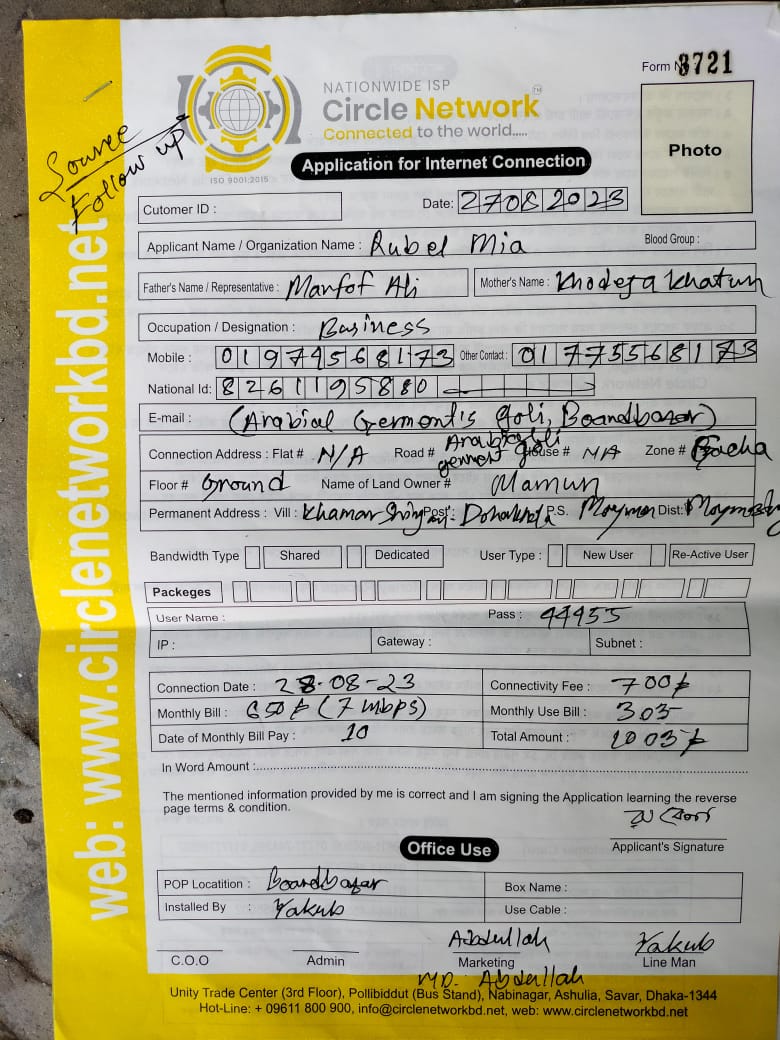 Form N 3721
NATIONWIDE ISP
Circle Network
TM
Connected to the world.....
Source
Follow up
ISO 9001:2015
Application for Internet Connection
Photo
Cutomer ID :
Date: 27082023
Applicant Name / Organization Name : Rubel Mia Blood Group :
Father's Name / Representative : Manfof Ali Mother's Name : Khodeja Khatun
Occupation / Designation : Business
Mobile : 01974568173 Other Contact : 01775568173
National Id: 8261195880
E-mail : (Arabial Germentis goli, Boardbazar)
Connection Address : Flat # N/A Road # Arabial goli germent House # N/A Zone # Gacha
Floor # Ground Name of Land Owner # Mamun
Permanent Address : Vill : Khamar Post: P.S. Dist:
Bandwidth Type Shared Dedicated User Type : New User Re-Active User
Packeges
User Name : Pass : 44455
IP : Gateway : Subnet :
Connection Date : 28-08-23 Connectivity Fee : 700/-
Monthly Bill : 650/- (7 mbps) Monthly Use Bill : 303
Date of Monthly Bill Pay : 10 Total Amount : 1003/-
In Word Amount :
The mentioned information provided by me is correct and I am signing the Application learning the reverse
page terms & condition.
Applicant's Signature
Office Use
POP Locatition : Boardbazar Box Name :
Installed By : Yakub Use Cable :
Abdullah Yakub
C.O.O Admin Marketing Line Man
MD. Abdullah
Unity Trade Center (3rd Floor), Pollibiddut (Bus Stand), Nabinagar, Ashulia, Savar, Dhaka-1344
Hot-Line: + 09611 800 900, info@circlenetworkbd.net, web: www.circlenetworkbd.net
web: www.circlenetworkbd.net